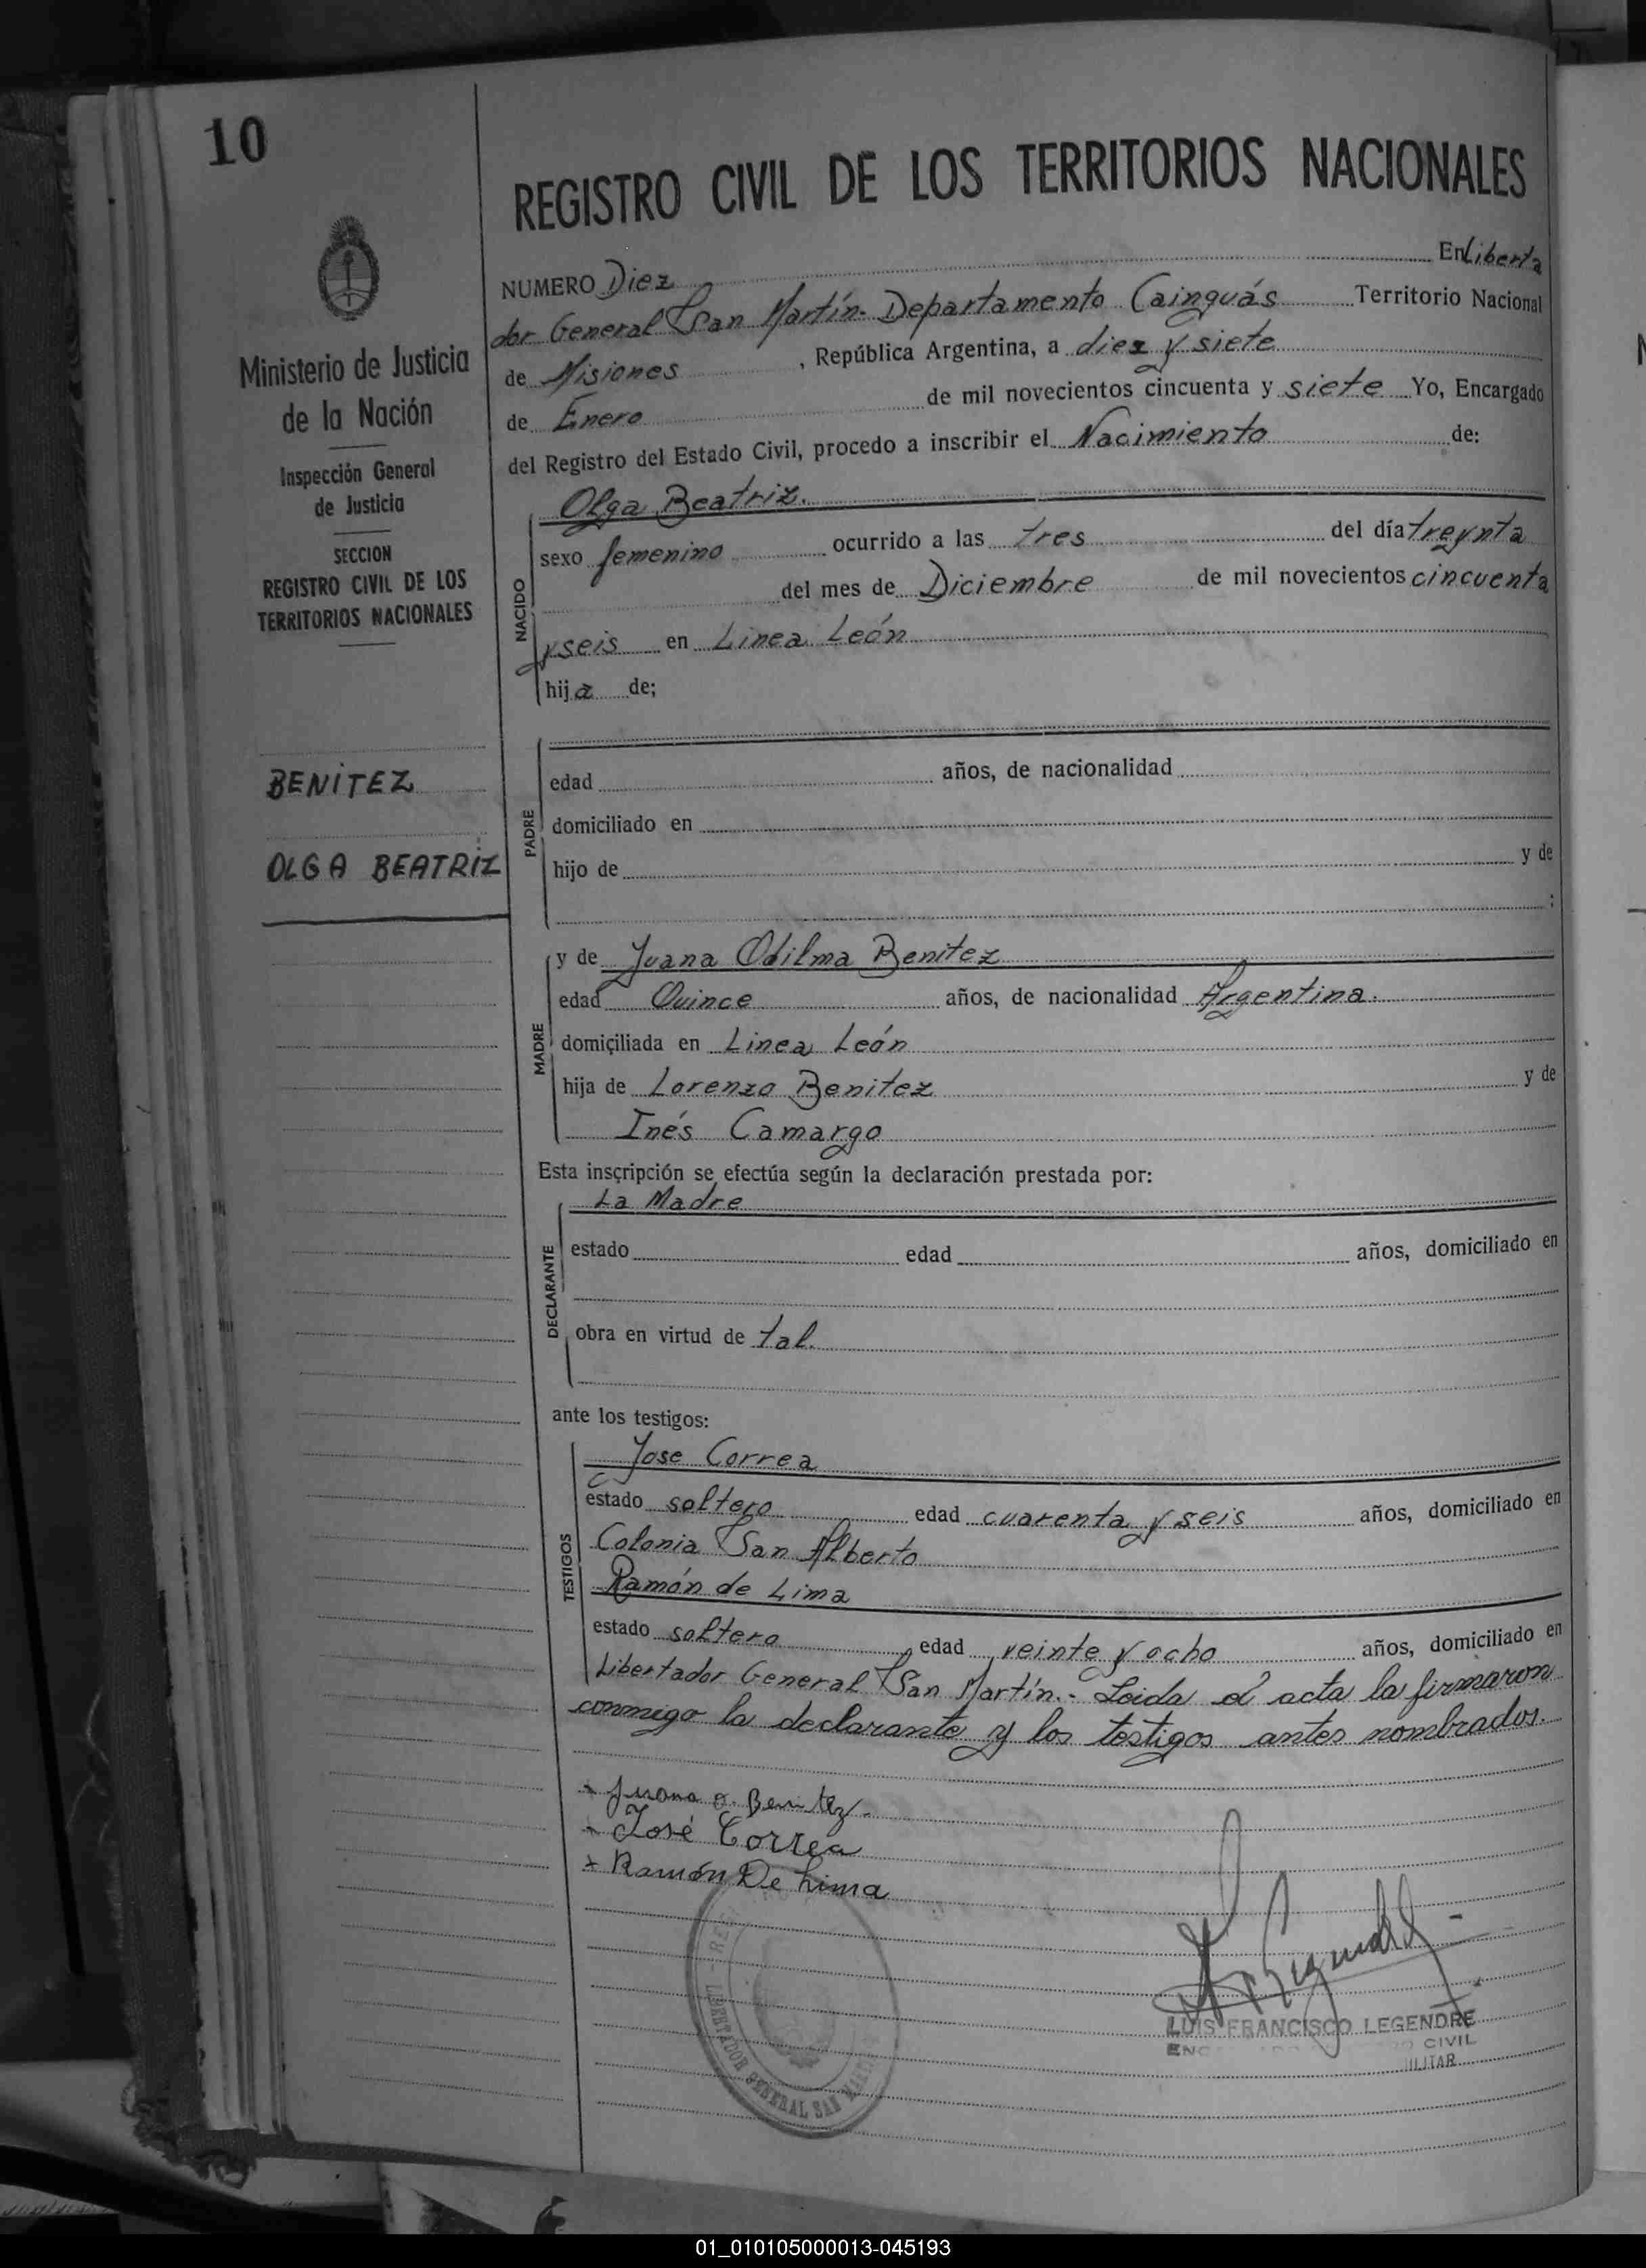 10
Ministerio de Justicia
de la Nación
Inspección General
de Justicia
SECCION
REGISTRO CIVIL DE LOS
TERRITORIOS NACIONALES
BENITEZ
OLGA BEATRIZ
REGISTRO CIVIL DE LOS TERRITORIOS NACIONALES
NUMERO Diez En Liberta
dor General San Martín- Departamento Cainguás Territorio Nacional
de Misiones , República Argentina, a diez y siete
de Enero de mil novecientos cincuenta y siete Yo, Encargado
del Registro del Estado Civil, procedo a inscribir el Nacimiento de:
NACIDO
Olga Beatriz.
sexo femenino ocurrido a las tres del día treynta
del mes de Diciembre de mil novecientos cincuenta
y seis en Linea León
hija de;
PADRE
edad años, de nacionalidad
domiciliado en
hijo de y de
:
MADRE
y de Juana Odilma Benitez
edad Quince años, de nacionalidad Argentina.
domiciliada en Linea León
hija de Lorenzo Benitez y de
Inés Camargo
Esta inscripción se efectúa según la declaración prestada por:
DECLARANTE
La Madre
estado edad años, domiciliado en
obra en virtud de tal.
ante los testigos:
TESTIGOS
Jose Correa
estado soltero edad cuarenta y seis años, domiciliado en
Colonia San Alberto
Ramón de Lima
estado soltero edad veinte y ocho años, domiciliado en
Libertador General San Martín.- Leida el acta la firmaron
conmigo la declarante y los testigos antes nombrados.
+ Juana O. Benitez.
+ José Correa
+ Ramón De Lima
LIBERTADOR GENERAL SAN
LUIS FRANCISCO LEGENDRE
CIVIL
01_010105000013-045193